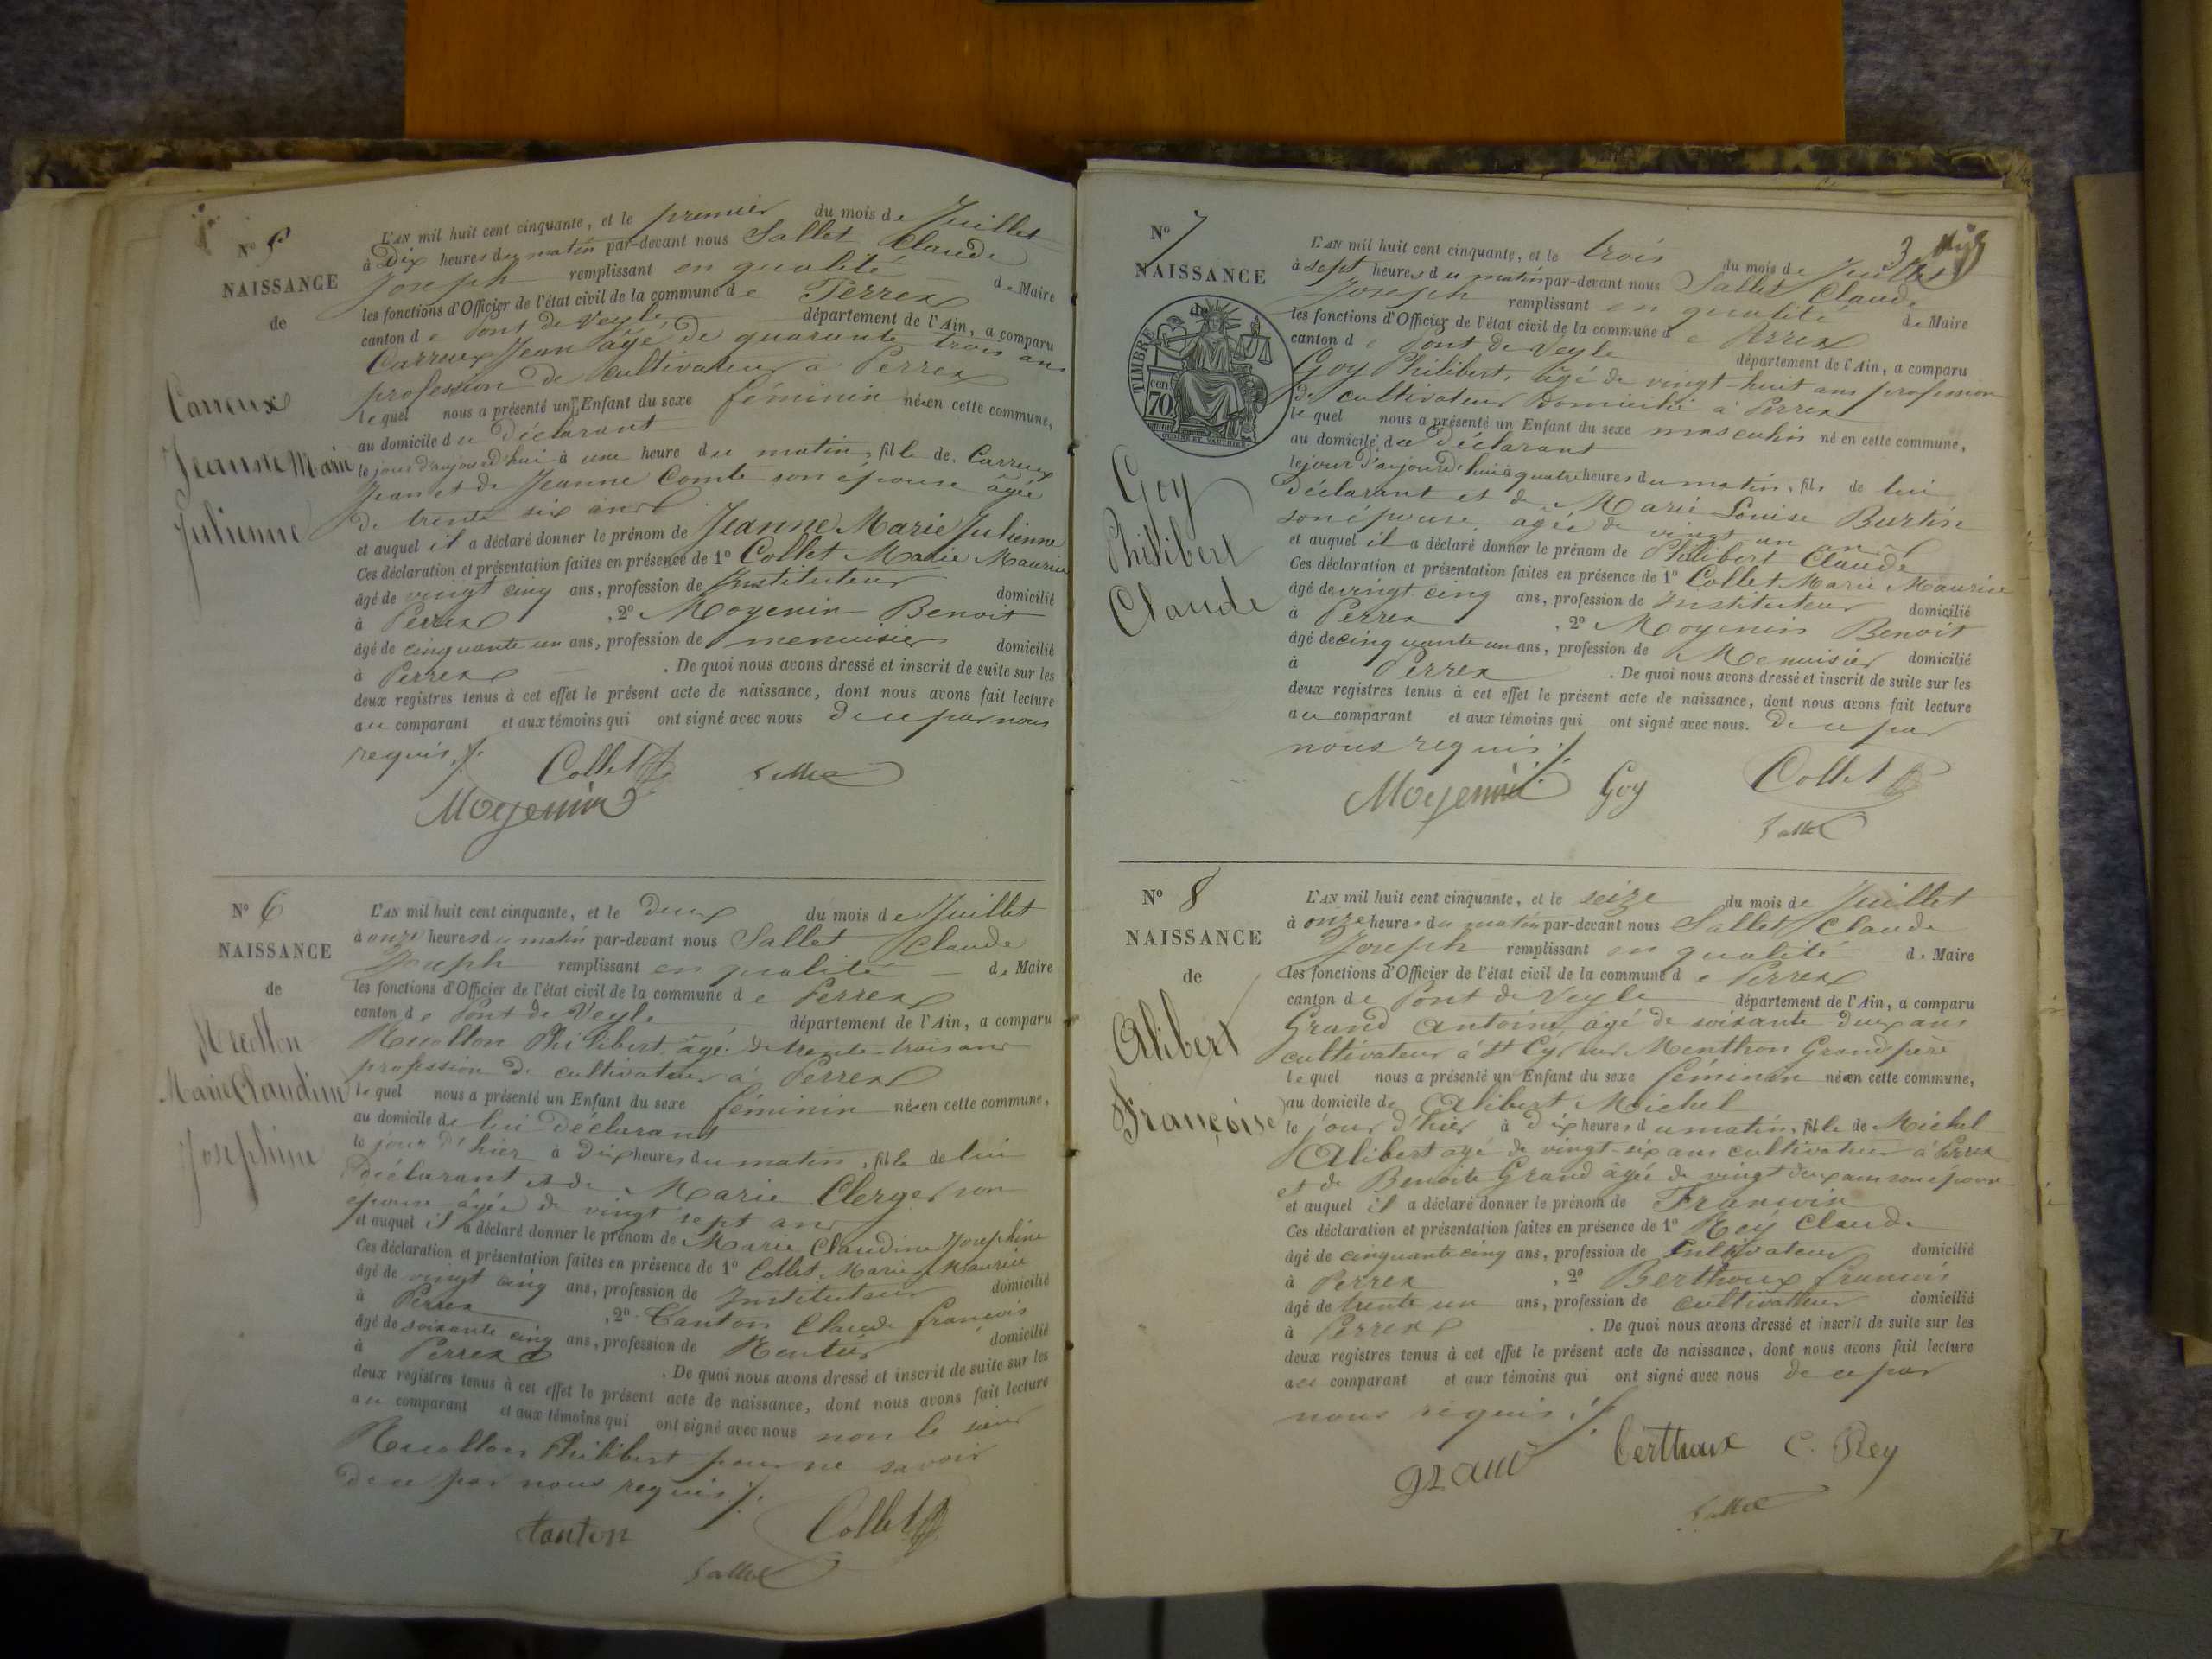 N° 5
NAISSANCE
de
Carreux
Jeanne Marie
Julienne
L'AN mil huit cent cinquante, et le premier du mois de Juillet
à Dix heures du matin par-devant nous Sallet Claude
Joseph remplissant en qualité de Maire
les fonctions d'Officier de l'état civil de la commune de Perrex
canton de Pont de Veyle département de l'Ain, a comparu
Carreux Jean âgé de quarante trois ans
profession de cultivateur à Perrex
lequel nous a présenté un Enfant du sexe féminin née en cette commune,
au domicile du Déclarant
le jour d'aujourd'hui à une heure du matin, fille de Carreux
Jean et de Jeanne Comte son épouse âgée
de trente six ans
et auquel il a déclaré donner le prénom de Jeanne Marie Julienne
Ces déclaration et présentation faites en présence de 1° Collet Marie Maurice
âgé de vingt cinq ans, profession de Instituteur domicilié
à Perrex , 2° Moyenin Benoit
âgé de cinquante un ans, profession de menuisier domicilié
à Perrex . De quoi nous avons dressé et inscrit de suite sur les
deux registres tenus à cet effet le présent acte de naissance, dont nous avons fait lecture
au comparant et aux témoins qui ont signé avec nous de ce par nous
requis ./.
Collet Sallet
Moyenin
N° 6
NAISSANCE
de
Marie Claudine
Josephine
L'AN mil huit cent cinquante, et le deux du mois de Juillet
à onze heures du matin par-devant nous Sallet Claude
Joseph remplissant en qualité de Maire
les fonctions d'Officier de l'état civil de la commune de Perrex
canton de Pont de Veyle département de l'Ain, a comparu
Philibert âgé de trente-trois ans
profession de cultivateur à Perrex
lequel nous a présenté un Enfant du sexe féminin née en cette commune,
au domicile de lui Déclarant
le jour d'hier à Dix heures du matin, fille de lui
Déclarant et de Marie Clerget son
épouse âgée de vingt sept ans
et auquel il a déclaré donner le prénom de Marie Claudine Josephine
Ces déclaration et présentation faites en présence de 1° Collet Marie Maurice
âgé de vingt cinq ans, profession de Instituteur domicilié
à Perrex , 2° Tanton Claude francois
âgé de soixante cinq ans, profession de Rentier domicilié
à Perrex . De quoi nous avons dressé et inscrit de suite sur les
deux registres tenus à cet effet le présent acte de naissance, dont nous avons fait lecture
au comparant et aux témoins qui ont signé avec nous non le sieur
Philibert pour ne savoir
de ce par nous requis ./.
tanton Collet
Sallet
N° 7
NAISSANCE
de
TIMBRE
70 cen
Goy
Philibert
Claude
3
L'AN mil huit cent cinquante, et le trois du mois de Juillet
à sept heures du matin par-devant nous Sallet Claude
Joseph remplissant en qualité de Maire
les fonctions d'Officier de l'état civil de la commune de Perrex
canton de Pont de Veyle département de l'Ain, a comparu
Goy Philibert, âgé de vingt-huit ans profession
de cultivateur domicilié à Perrex
lequel nous a présenté un Enfant du sexe masculin né en cette commune,
au domicile du Déclarant
le jour d'aujourd'hui à quatre heures du matin, fils de lui
Déclarant et de Marie Louise Burtin
son épouse âgée de vingt un ans
et auquel il a déclaré donner le prénom de Philibert Claude
Ces déclaration et présentation faites en présence de 1° Collet Marie Maurice
âgé de vingt cinq ans, profession de Instituteur domicilié
à Perrex , 2° Moyenin Benoit
âgé de cinquante un ans, profession de Menuisier domicilié
à Perrex . De quoi nous avons dressé et inscrit de suite sur les
deux registres tenus à cet effet le présent acte de naissance, dont nous avons fait lecture
au comparant et aux témoins qui ont signé avec nous. de ce par
nous requis ./.
Moyenin Goy Collet
Sallet
N° 8
NAISSANCE
de
Alibert
Françoise
L'AN mil huit cent cinquante, et le seize du mois de Juillet
à onze heures du matin par-devant nous Sallet Claude
Joseph remplissant en qualité de Maire
les fonctions d'Officier de l'état civil de la commune de Perrex
canton de Pont de Veyle département de l'Ain, a comparu
Grand Antoine, âgé de soixante deux ans
cultivateur à St Cyr sur Menthon Grand père
lequel nous a présenté un Enfant du sexe féminin née en cette commune,
au domicile de Alibert Michel
le jour d'hier à dix heures du matin, fille de Michel
Alibert agé de vingt-six ans cultivateur à Perrex
et de Benoite Grand âgée de vingt deux ans son épouse
et auquel il a déclaré donner le prénom de
Ces déclaration et présentation faites en présence de 1° Rey Claude
âgé de cinquante cinq ans, profession de Cultivateur domicilié
à Perrex , 2° Berthoux francois
âgé de trente un ans, profession de cultivateur domicilié
à Perrex . De quoi nous avons dressé et inscrit de suite sur les
deux registres tenus à cet effet le présent acte de naissance, dont nous avons fait lecture
au comparant et aux témoins qui ont signé avec nous de ce par
nous requis ./.
grand berthoux C. Rey
Sallet